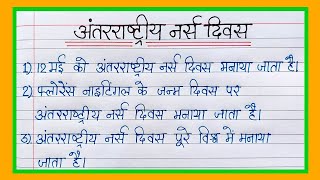 अंतरराष्ट्रीय नर्स दिवस
1) 12 मई को अंतरराष्ट्रीय नर्स दिवस मनाया जाता है।
2) फ्लोरेंस नाइटिंगल के जन्म दिवस पर
अंतरराष्ट्रीय नर्स दिवस मनाया जाता है।
3) अंतरराष्ट्रीय नर्स दिवस पूरे विश्व में मनाया
जाता है।